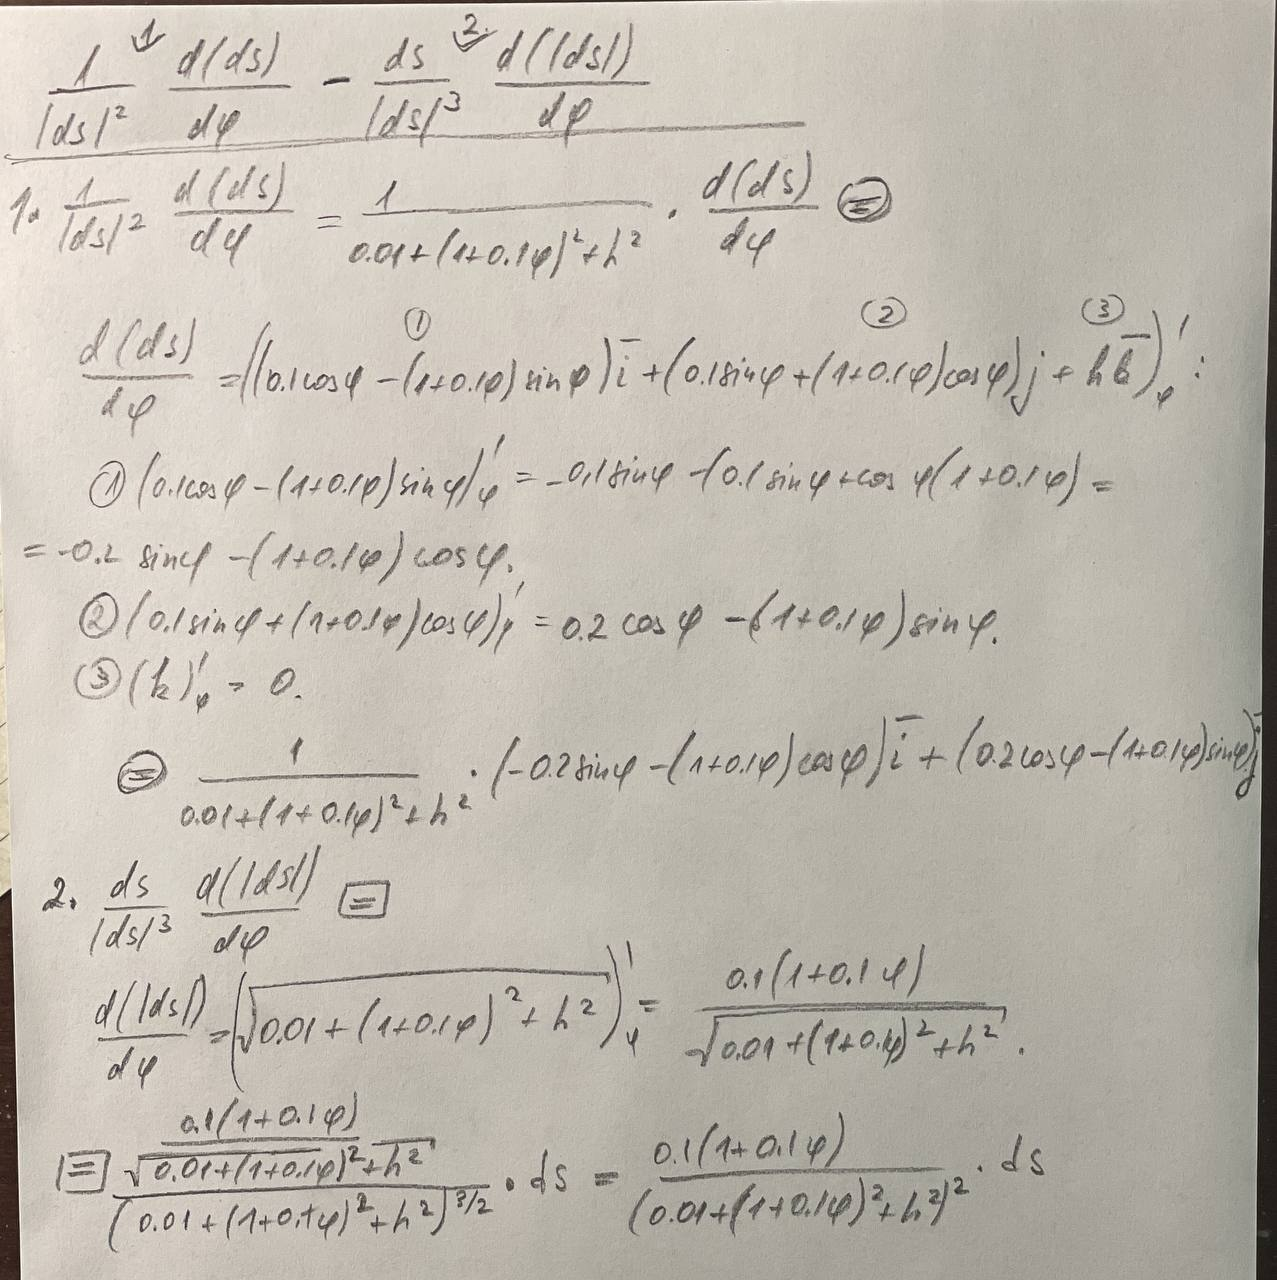 1/|ds|² ¹ d(ds)/dφ - ds/|ds|³ ² d(|ds|)/dφ
1. 1/|ds|² d(ds)/dφ = 1/(0.01+(1+0.1φ)²+h²) · d(ds)/dφ ⊜
① ② ③
d(ds)/dφ = ((0.1cosφ -(1+0.1φ) sinφ) i̅ + (0.1sinφ + (1+0.1φ)cosφ) j + h k̅)'φ :
① (0.1cosφ - (1+0.1φ) sinφ)'φ = -0.1sinφ - (0.1sinφ + cosφ(1+0.1φ) =
= -0.2 sinφ - (1+0.1φ) cosφ.
② (0.1sinφ + (1+0.1φ)cosφ)'φ = 0.2 cosφ - (1+0.1φ) sinφ.
③ (h)'φ = 0.
⊜ 1/(0.01+(1+0.1φ)²+h²) · (-0.2sinφ - (1+0.1φ)cosφ) i̅ + (0.2cosφ - (1+0.1φ)sinφ) j̅
2. ds/|ds|³ d(|ds|)/dφ [=]
d(|ds|)/dφ = (√(0.01+(1+0.1φ)²+h²))'φ = 0.1(1+0.1φ)/√(0.01+(1+0.1φ)²+h²) .
[=] (0.1(1+0.1φ)/√(0.01+(1+0.1φ)²+h²))/(0.01+(1+0.1φ)²+h²)^(3/2) · ds = 0.1(1+0.1φ)/(0.01+(1+0.1φ)²+h²)² · ds